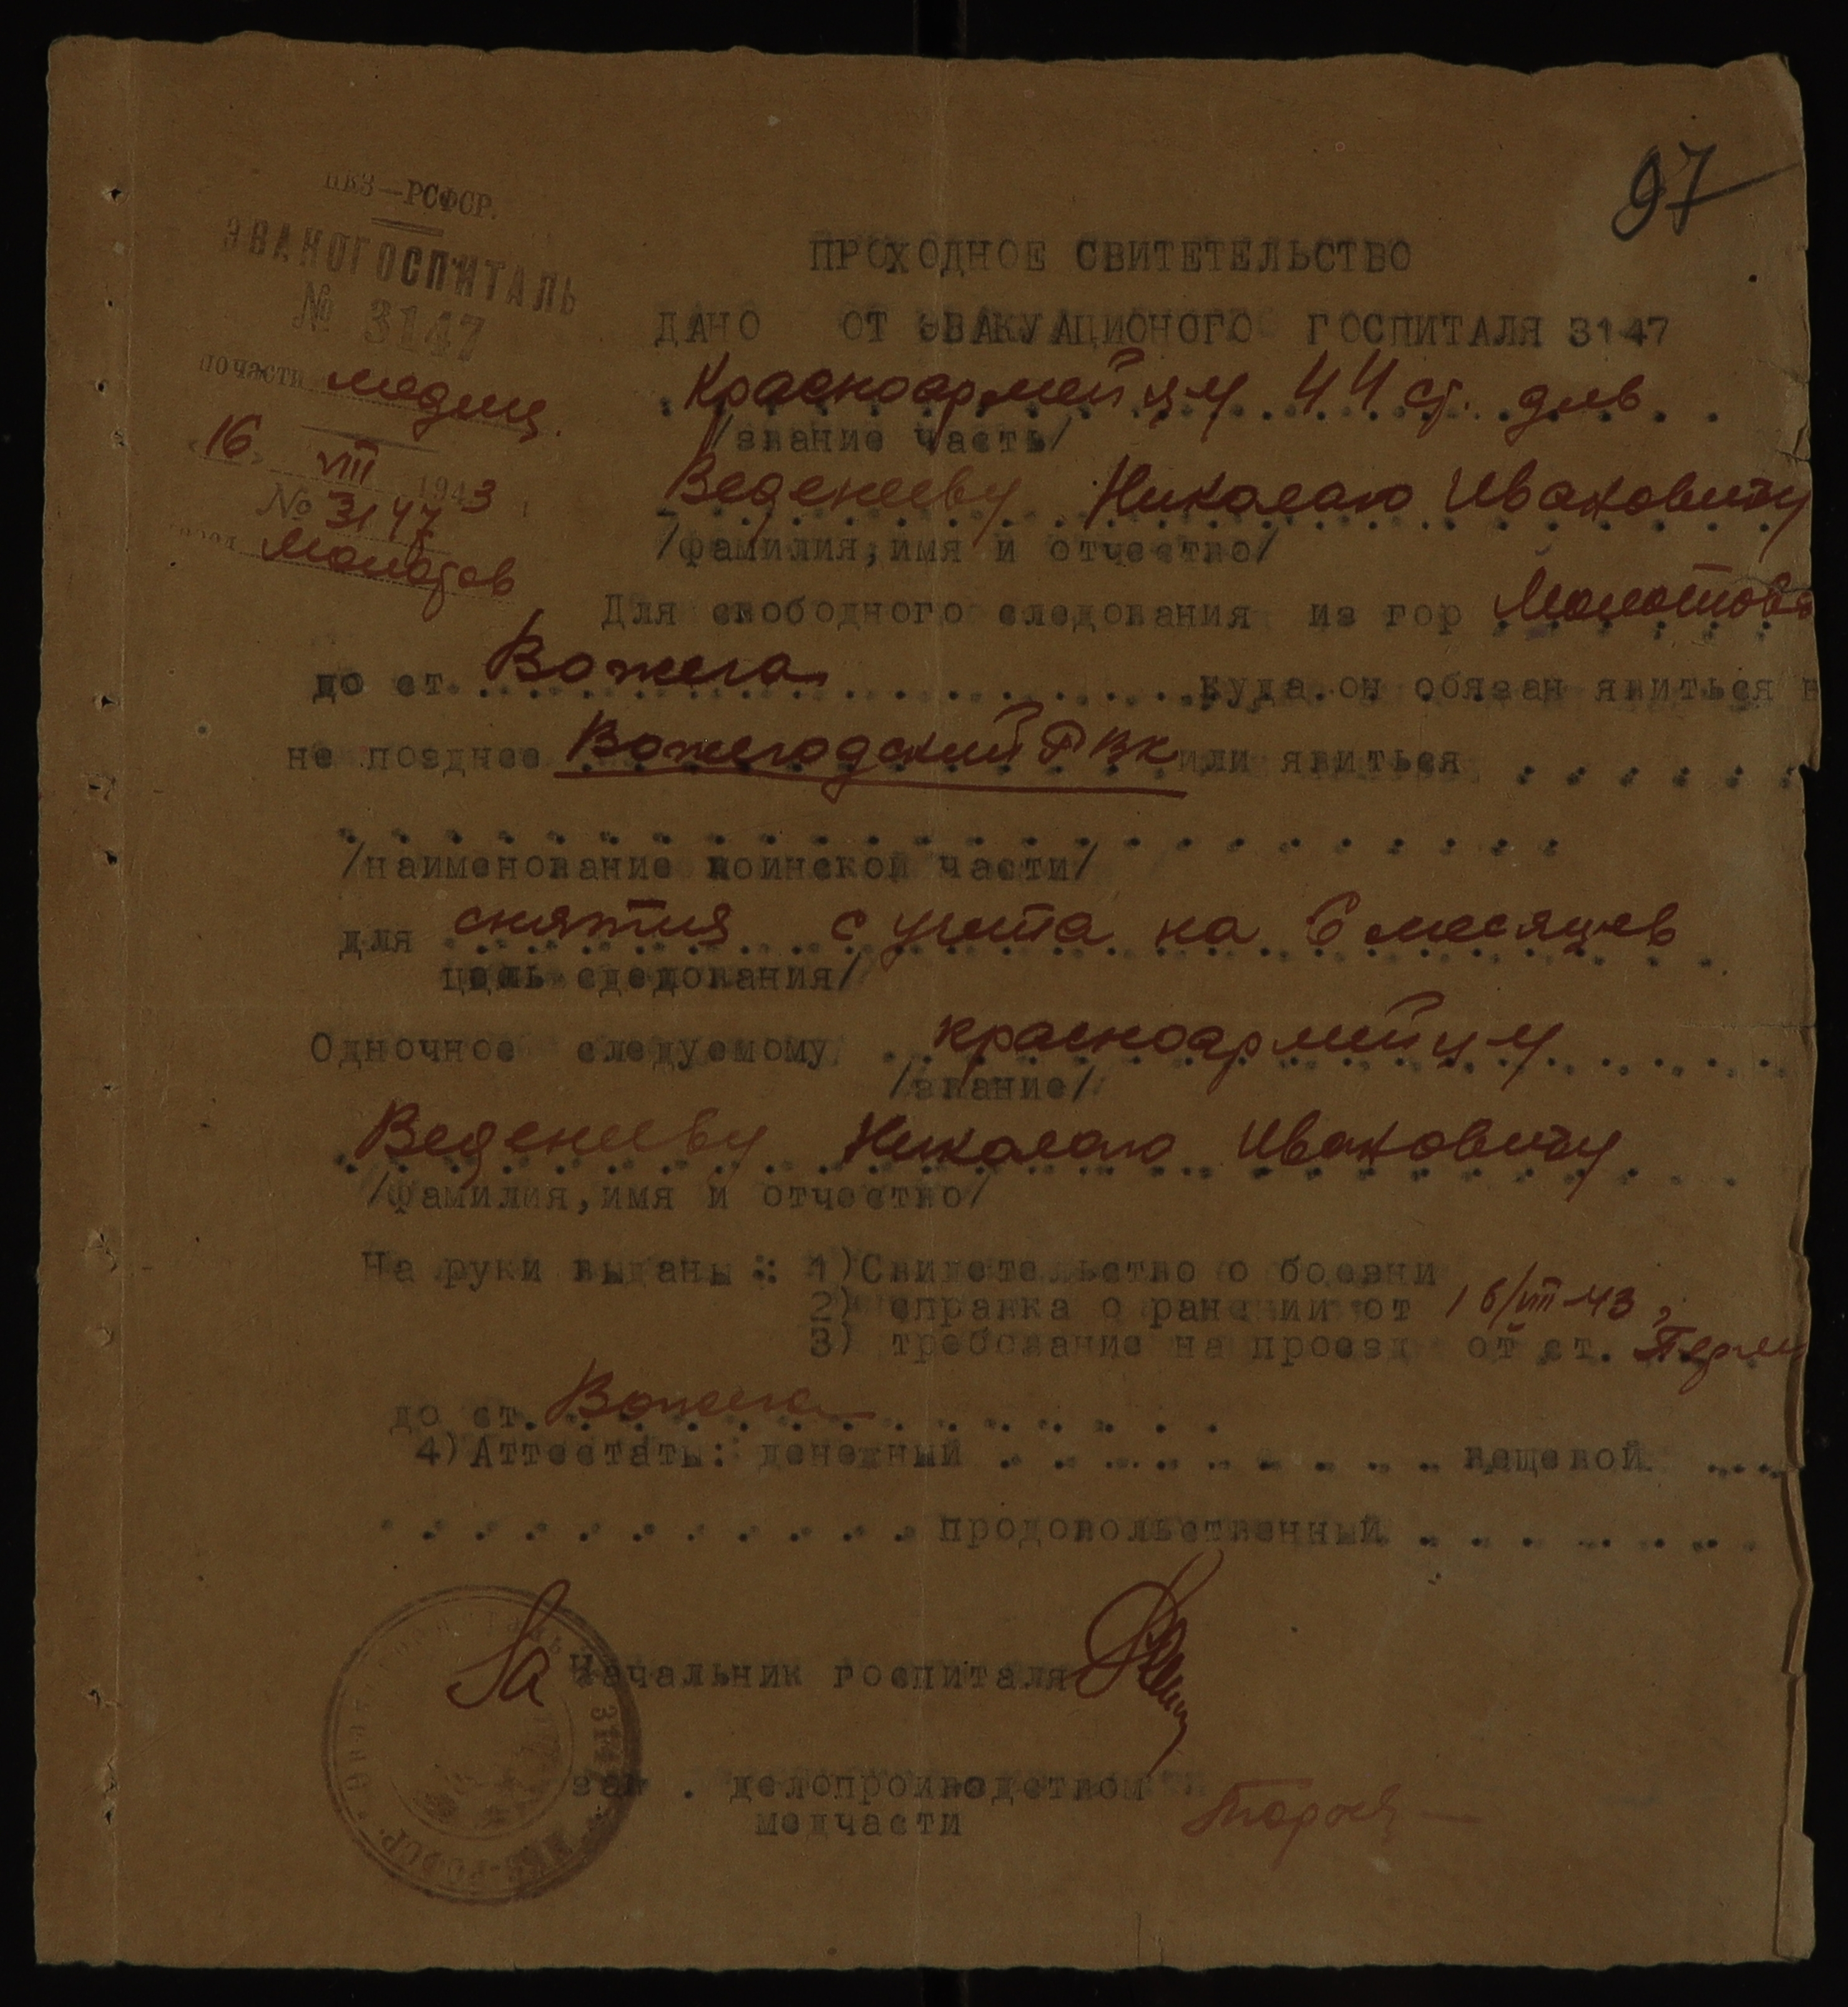 97
НКЗ—РСФСР.
ЭВАКОГОСПИТАЛЬ
№ 3147
по части медиц.
«16» VIII 1943
№ 3147
Молотов
ПРОХОДНОЕ СВИТЕТЕЛЬСТВО
ДАНО ОТ ЭВАКУАЦИОНОГО ГОСПИТАЛЯ 3147
Красноармейцу 44 ст. див.
/звание часть/
Веденееву Николаю Ивановичу
/фамилия,имя и отчество/
Для свободного следования из гор Молотова
до ст. Вожега куда он обязан явиться в
не позднее Вожегодский РВК или явиться
/наименование воинской части/
для снятия с учета на 6 месяцев
цель следования/
Одночное следуемому красноармейцу
/звание/
Веденееву Николаю Ивановичу
/фамилия,имя и отчество/
На руки выданы : 1)Свидетельство о боевни
2) справка о ранении от 16/VIII-43
3) требование на проезд от ст. Пермь
до ст. Вожега
4)Аттестаты: денежный вещевой
продовольственный
За Начальник госпиталя
зав . делопроизводством
медчасти
3147
НКЗ-РСФСР